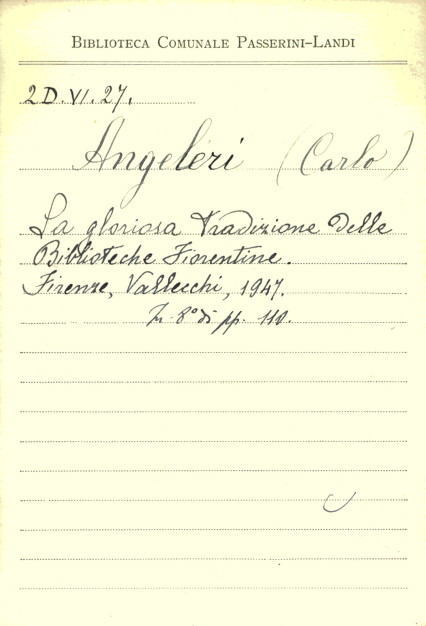 BIBLIOTECA COMUNALE PASSERINI-LANDI
2D.VI.27.
Angeleri (Carlo)
La gloriosa tradizione delle
Biblioteche Fiorentine.
Firenze, Vallecchi, 1947.
In 8° di pp. 110.